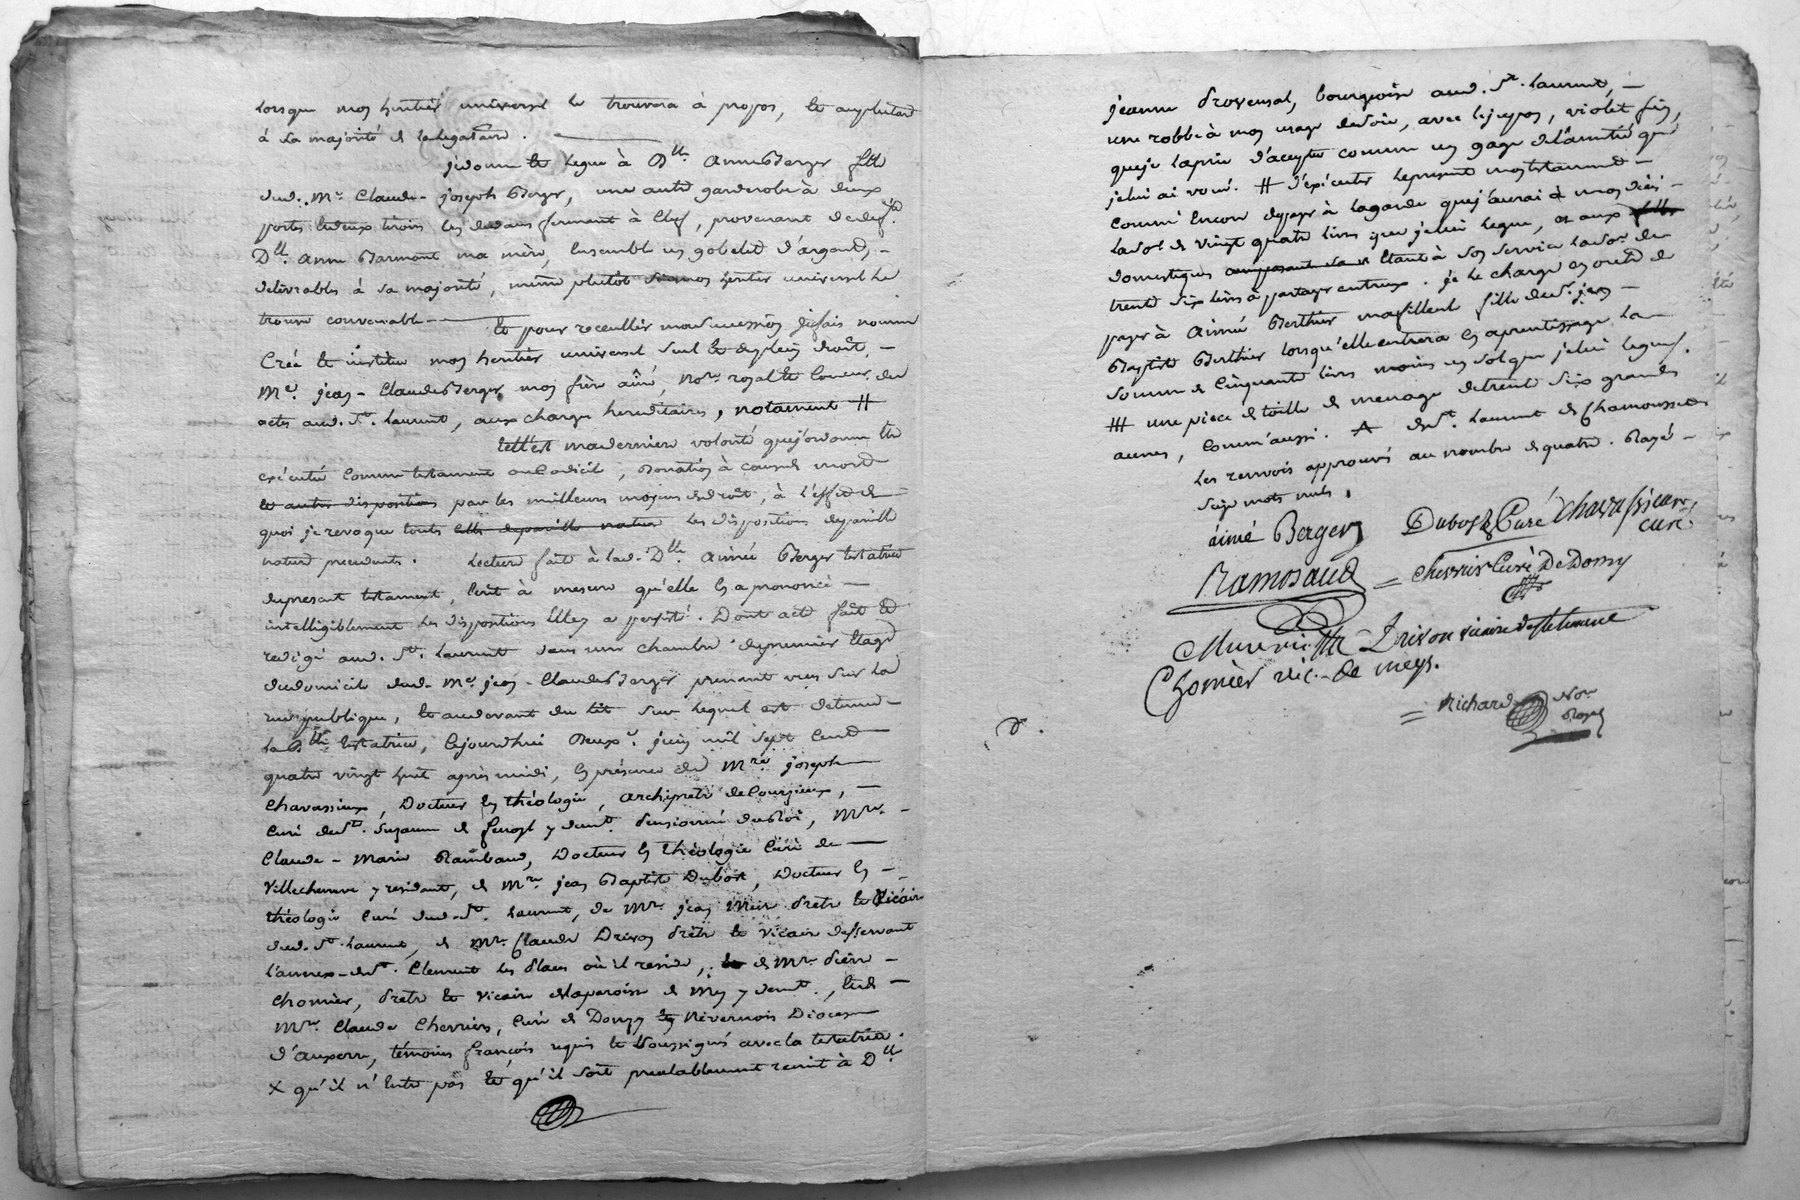 lorsque mon heritier universel le trouvera à propos, et au plustard
à sa majorité de la legataire.
Je donne et legue à Dlle. Anne Berger fille
dud. Me Claude-joseph Berger, une autre garderobe à deux
portes et deux tiroirs les dedans fermant à Clef, provenant de def.te
Dlle. anne Marmont ma mère, ensemble un gobelet d'argent,
delivrables à sa majorité, même plutôt si mon heritier universel le
trouve convenable
Et pour recueillir ma succession je fais nomme
Créé et institue mon heritier universel seul et de plein droit,
Me. jean-Claude Berger, mon frère aîné, Nore. royal et
actes aud. St. Laurent, aux charges hereditaires, notament #
telle est ma derniere volonté que j'ordonne être
exécuté comme testament ou Codicil, Donation à cause de mort
et autres dispositions par les meilleurs moyens de droit, à l'effet de
quoi je revoque toutes les dispositions de pareille
nature precedents. Lecture fait à lad. Dlle. aimée Berger testatrice
du present testament, écrit à mesure qu'elle en a prononcé
intelligiblement les dispositions Elle y a persisté. Dont acte fait et
redigé aud. St. Laurent dans une chambre du premier Etage
du domicile dud. Me. jean-Claude Berger prenant vues sur la
rue publique, et au devant du lit sur lequel est detenue
la Dlle. testatrice, Cejourd'hui Deux juin mil sept Cent
quatre vingt huit après midi, en présence de Mre. joseph
Chavassieux, Docteur en théologie, archiprêtre de Courzieux,
Curé de Ste. Suzanne de y demt. Pensionné du Roi, Mre.
Claude-Marie Rambaud, Docteur en théologie Curé de
Villecheneve y residant, de Mre. jean Baptiste Dubost, Docteur en
théologie Curé dud. St. Laurent, de Mre. jean Prêtre et Vicaire
dud. St. Laurent, de Mre. Claude Drivon Prêtre et Vicaire desservant
l'annexe de St. Clement les Places où il reside, de Mre. Pierre
Chomier, Prêtre et Vicaire de la paroisse de Mey y demt., et de
Mre. Claude Cherriès, Curé de Donzy en Nivernois Diocese
d'auxerre, témoins françois requis et soussignés avec la testatrice.
X qu'il n'entre pas et qu'il soit prealablement remit à Dlle
D.
jeanne Provensal, bourgeoise aud. St. Laurent,
une robbe à mon usage de soie, avec le jupon, violet fin,
que je la prie d'accepter comme un gage de l'amitié que
je lui ai voué. # d'exécuter le present mon testament
comme Encore de payer à la garde que j'aurai à mon décès
la some de vingt quatre livres que je lui legue, et aux
domestiques Etant à son service la some de
trente six livres à partager entreux. je le charge en outre de
payer à Aimée Berthier ma filleule fille de Sr. jean
Baptiste Berthier lorsqu'elle entrera en aprentissage la
somme de Cinquante livres moins un sol que je lui legue.
## une piece de toille de menage de trente six grandes
aunes, Comm'aussi. A de St. Laurent de Chamousset
Les renvois approuvés au nombre de quatre. Rayé
Seize mots nuls.
aimé Berger
Dubost Curé
Chavassieux
curé
Ramosaud
Cherriès Curé De Donzy
Drivon vicaire de St clement
Chomier vic. de meys.
Richard Nore
Royal